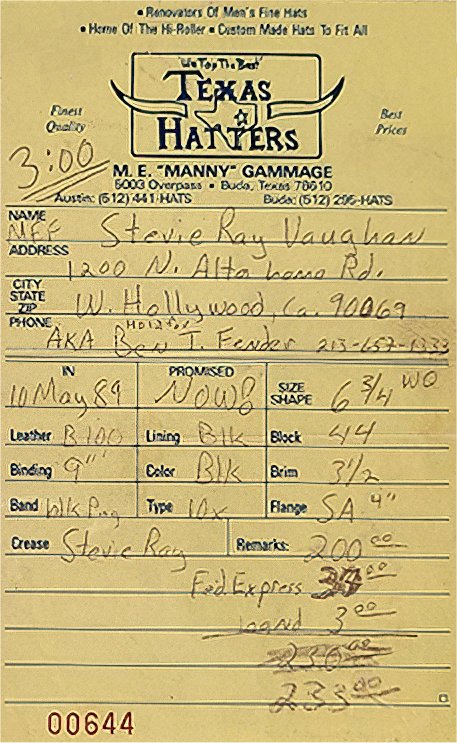 • Renovators Of Men's Fine Hats
• Home Of The Hi-Roller • Custom Made Hats To Fit All
"We Top The Best"
TEXAS
HATTERS
Finest Quality
Best Prices
3:00
M. E. "MANNY" GAMMAGE
5003 Overpass • Buda, Texas 78610
Austin: (512) 441-HATS Buda: (512) 295-HATS
NAME Stevie Ray Vaughan
MEF
ADDRESS 1200 N. Alta Loma Rd.
CITY STATE ZIP W. Hollywood, Ca. 90069
PHONE Hold for
AKA Ben T. Fender 213-657-1333
IN PROMISED SIZE SHAPE 6 3/4 WO
10 May 89 NOW!
Leather B100 Lining Blk Block 44
Binding 9"' Color Blk Brim 3 1/2
Band Blk Type 10x Flange SA 4"
Crease Stevie Ray Remarks: 200.00
Fed. Express 00
3.00
230.00
233.00
00644